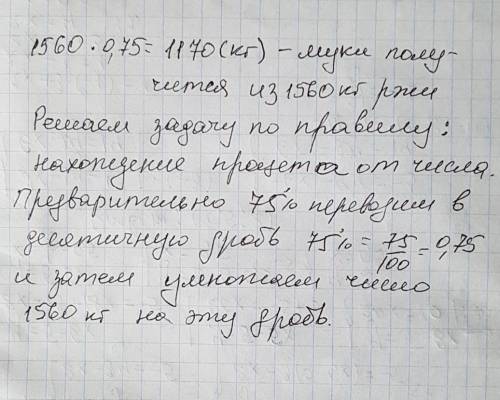 1560 · 0,75 = 1170 (кг) – муки полу-
чится из 1560 кг ржи
Решаем задачу по правилу:
нахождение процента от числа.
Предварительно 75% переводим в
десятичную дробь 75% = 75/100 = 0,75
и затем умножаем число
1560 кг на эту дробь.